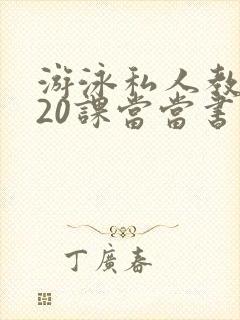 游泳私人教
20課當當書
丁廣春